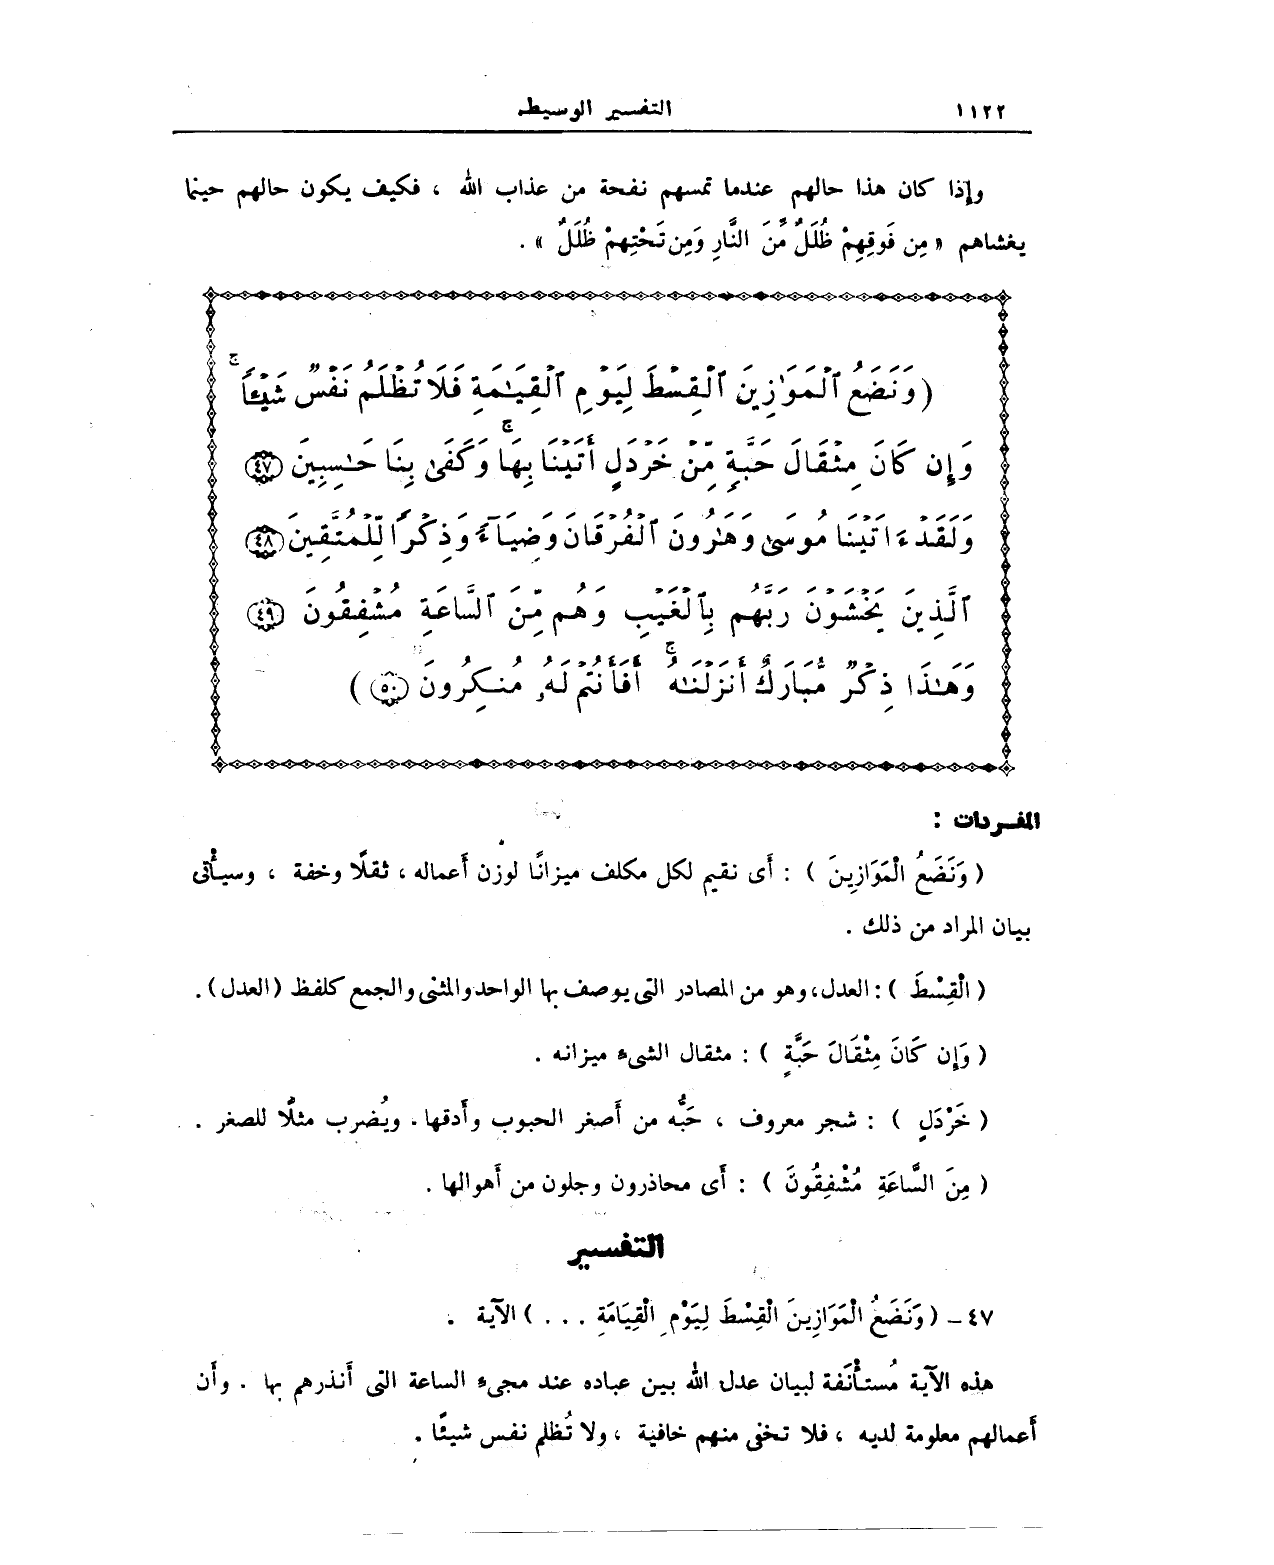 ١١٢٢
التفسير الوسيط
وإذا كان هذا حالهم عندما تمسهم نفحة من عذاب الله ، فكيف يكون حالهم حينما
يغشاهم « مِن فَوقِهِمْ ظُلَلٌ مِّنَ النَّارِ وَمِن تَحْتِهِمْ ظُلَلٌ » .
( وَنَضَعُ ٱلْمَوَٰزِينَ ٱلْقِسْطَ لِيَوْمِ ٱلْقِيَـٰمَةِ فَلَا تُظْلَمُ نَفْسٌ شَيْـًٔا ۖ
وَإِن كَانَ مِثْقَالَ حَبَّةٍ مِّنْ خَرْدَلٍ أَتَيْنَا بِهَا ۗ وَكَفَىٰ بِنَا حَـٰسِبِينَ ٤٧
وَلَقَدْ ءَاتَيْنَا مُوسَىٰ وَهَـٰرُونَ ٱلْفُرْقَانَ وَضِيَآءً وَذِكْرًا لِّلْمُتَّقِينَ ٤٨
ٱلَّذِينَ يَخْشَوْنَ رَبَّهُم بِٱلْغَيْبِ وَهُم مِّنَ ٱلسَّاعَةِ مُشْفِقُونَ ٤٩
وَهَـٰذَا ذِكْرٌ مُّبَارَكٌ أَنزَلْنَـٰهُ ۚ أَفَأَنتُمْ لَهُۥ مُنكِرُونَ ٥٠ )
المفردات :
( وَنَضَعُ الْمَوَازِينَ ) : أَى نقيم لكل مكلف ميزانًا لوزن أَعماله ، ثقلًا وخفة ، وسيأْتى
بيان المراد من ذلك .
( الْقِسْطَ ) : العدل، وهو من المصادر التى يوصف بها الواحد والمثنى والجمع كلفظ (العدل) .
( وَإِن كَانَ مِثْقَالَ حَبَّةٍ ) : مثقال الشىء ميزانه .
( خَرْدَلٍ ) : شجر معروف ، حَبُّه من أَصغر الحبوب وأَدقها . ويُضرب مثلًا للصغر .
( مِنَ السَّاعَةِ مُشْفِقُونَ ) : أَى محاذرون وجلون من أَهوالها .
التفسير
٤٧ – ( وَنَضَعُ الْمَوَازِينَ الْقِسْطَ لِيَوْمِ الْقِيَامَةِ . . . ) الآية .
هذه الآية مُستأْنَفة لبيان عدل الله بين عباده عند مجىء الساعة التى أَنذرهم بها . وأَن
أَعمالهم معلومة لديه ، فلا تخفى منهم خافية ، ولا تُظلم نفس شيئًا .